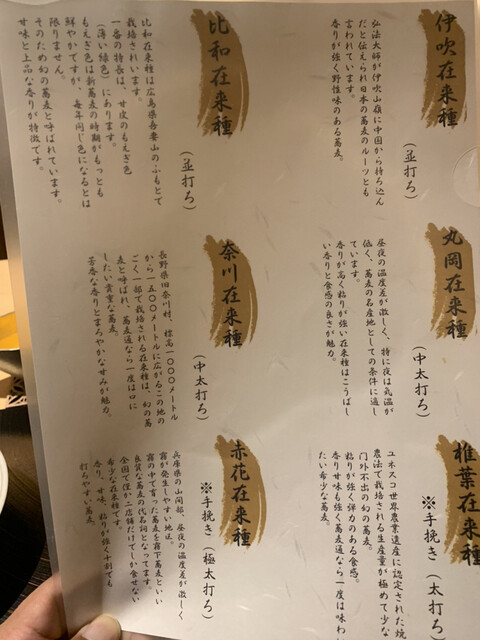 伊吹在来種
（並打ち）
弘法大師が伊吹山嶺に中国から持ち込ん
だと伝えられ日本の蕎麦のルーツとも
言われています。
香りが強く野性味のある蕎麦。
比和在来種
（並打ち）
比和在来種は広島県吾妻山のふもとで
栽培されいます。
一番の特長は、甘皮のもえぎ色
（薄い緑色）にあります。
もえぎ色は新蕎麦の時期がもっとも
鮮やかですが、毎年同じ色になるとは
限りません。
そのため幻の蕎麦と呼ばれています。
甘味と上品な香りが特徴です。
丸岡在来種
（中太打ち）
昼夜の温度差が激しく、特に夜は気温が
低く、蕎麦の名産地としての条件に適し
ています。
香りが高く粘りが強い在来種はこうばし
い香りと食感の良さが魅力。
奈川在来種
（中太打ち）
長野県旧奈川村、標高一〇〇〇メートル
から一五〇〇メートルに広がるこの地の
ごく一部で栽培される在来種は、幻の蕎
麦と呼ばれ、蕎麦通なら一度は口に
したい貴重な蕎麦。
芳香な香りとまろやかな甘みが魅力。
椎葉在来種
※手挽き（太打ち）
ユネスコ世界農業遺産に認定された焼
農法で栽培される生産量が極めて少な
門外不出の幻の蕎麦。
粘りが強く弾力のある食感。
香り甘味も強く蕎麦通なら一度は味わい
たい希少な蕎麦。
赤花在来種
※手挽き（極太打ち）
兵庫県の山間部、昼夜の温度差が激しく
霧が発生しやすい地区。
霧の中で育った蕎麦を霧下蕎麦といい
良質な蕎麦の代名詞となってます。
全国で僅か二店舗だけでしか食せない
希少な在来種です。
香り、甘味、粘りが強く十割でも
打ちやすい蕎麦。